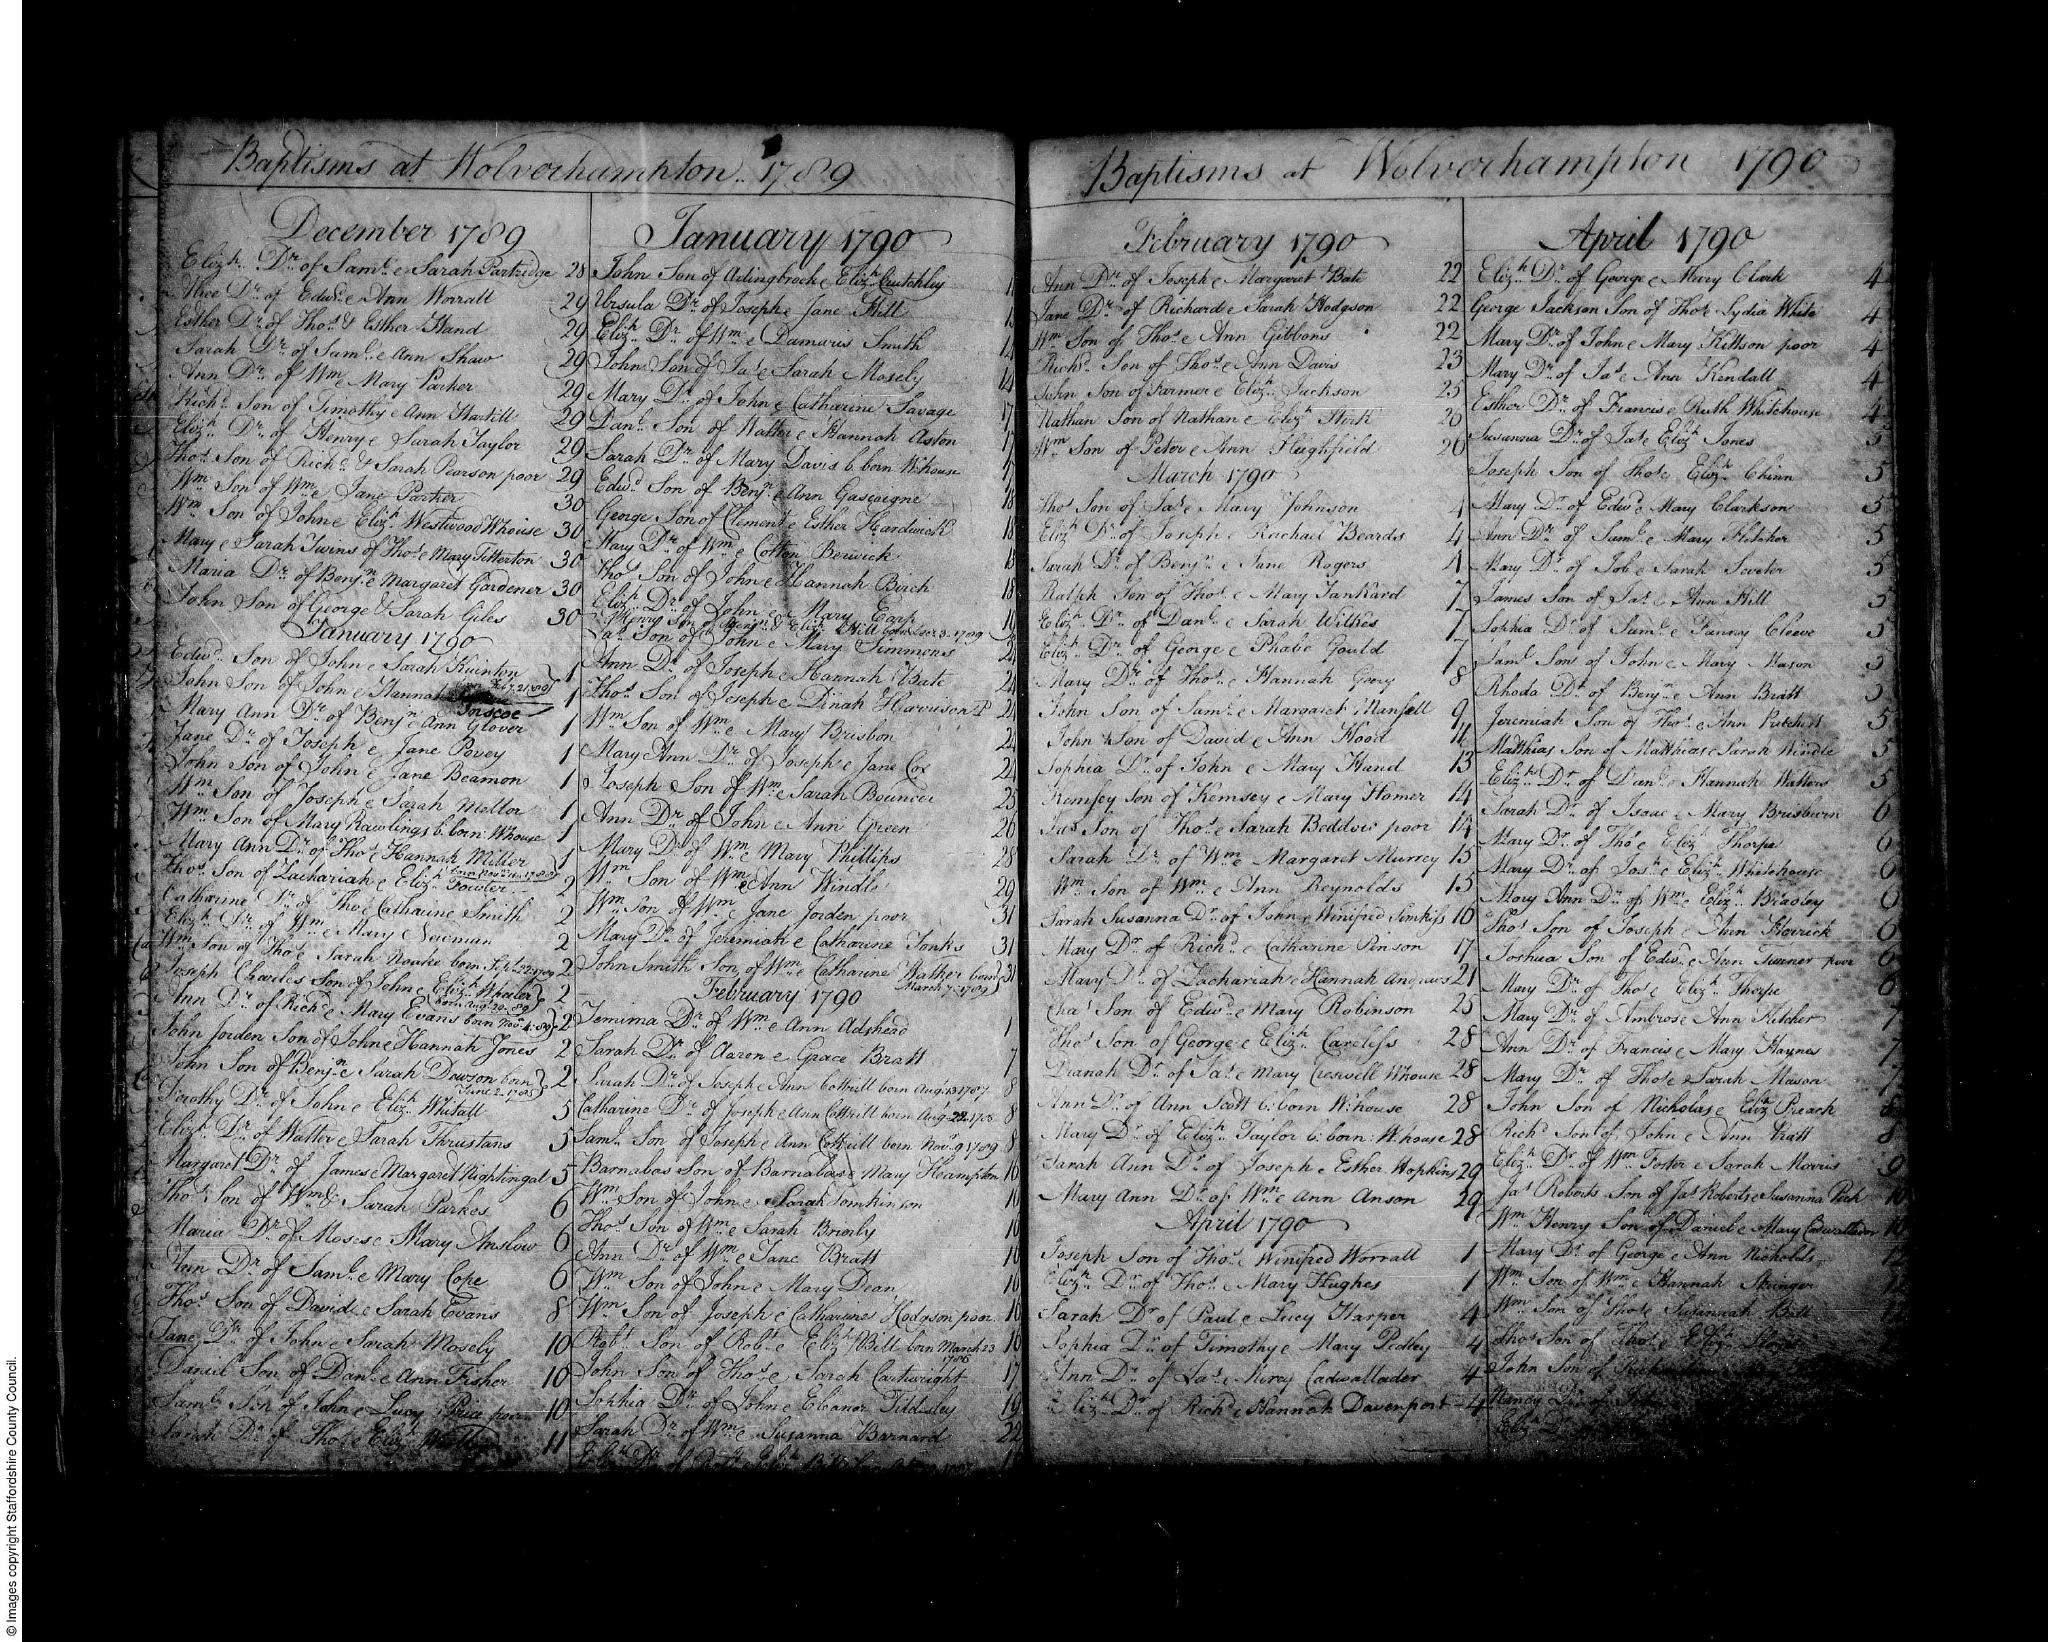 Baptisms at Wolverhampton 1789
December 1789
Elizh. Dr. of Saml. e Sarah Partridge 28
Alice Dr. of Edwd. e Ann Worrall 29
Esther Dr. of Thos. & Esther Hand 29
Sarah Dr. of Saml. e Ann Shaw 29
Ann Dr. of Wm. e Mary Parker 29
Richd. Son of Timothy e Ann Hartill 29
Elizh. Dr. of Henry e Sarah Taylor 29
Thos. Son of Richd. & Sarah Pearson poor 29
Wm. Son of Wm. e Jane Parker 30
Wm. Son of John e Elizh. Westwood Whouse 30
Mary e Sarah Twins of Thos. e Mary Titterton 30
Maria Dr. of Benjn. e Margaret Gardener 30
John Son of George & Sarah Giles 30
January 1790
Edwd. Son of John e Sarah Kuinton 1
John Son of John e Hannah Inscoe 1
Mary Ann Dr. of Benjn. e Ann Glover 1
Jane Dr. of Joseph e Jane Povey 1
John Son of John e Jane Beamon 1
Wm. Son of Joseph e Sarah Mellor 1
Wm. Son of Mary Rawlings b: born: Whouse 1
Mary Ann Dr. of Thos. e Hannah Miller 1
Thos. Son of Zachariah e Elizh. Fowler 2
Catharine Dr. of Thos. e Catharine Smith 2
Elizh. Dr. of Wm. e Mary Newman 2
Wm. Son of Thos. e Sarah Noake born Sept. 22 1789 2
Joseph Charles Son of John e Elizh. Wheeler 2
born Augt. 29. 89
Ann Dr. of Richd. e Mary Evans born Novr. 4. 89 2
John Jorden Son of John e Hannah Jones 2
John Son of Benjn. e Sarah Dowson born 2
June 2. 1785
Dorothy Dr. of John e Elizh. Whitall 5
Elizh. Dr. of Walter e Sarah Thrustans 5
Margaret Dr. of James e Margaret Nightingal 5
Thos. Son of Wm. & Sarah Parkes 6
Maria Dr. of Moses e Mary Anslow 6
Ann Dr. of Saml. e Mary Cope 6
Thos. Son of David e Sarah Evans 8
Jane Dr. of John e Sarah Mosely 10
Daniel Son of Danl. e Ann Fisher 10
Saml. Son of John e Lucy Price poor 10
Sarah Dr. of Thos. e Elizh. 11
January 1790
John Son of Adingbrock e Elizh. Crutchley
Ursula Dr. of Joseph e Jane Hill
Elizh. Dr. of Wm. e Damaris Smith 14
John Son of Jas. e Sarah Mosely 14
Mary Dr. of John e Catharine Savage 17
Danl. Son of Walter e Hannah Aston 17
Sarah Dr. of Mary Davis b. born W:house 17
Edwd. Son of Benjn. e Ann Gascoigne 18
George Son of Clement e Esther Hardwick 18
Mary Dr. of Wm. e Cotton Berwick 18
Thos. Son of John e Hannah Birch 18
Elizh. Dr. of John e Mary Earp 19
Henry Son of Benjn. & Elizh. Hill born Decr. 3. 1789
Jas. Son of John e Mary Simmons 21
Ann Dr. of Joseph e Hannah Bate 24
Thos. Son of Joseph e Dinah Harrison P 24
Wm. Son of Wm. e Mary Brisbon 24
Mary Ann Dr. of Joseph e Jane Cox 24
Joseph Son of Wm. e Sarah Bouncer 25
Ann Dr. of John e Ann Green 26
Mary Dr. of Wm. e Mary Phillips 28
Wm. Son of Wm. e Ann Windle 29
Wm. Son of Wm. e Jane Jorden poor 31
Mary Dr. of Jeremiah e Catharine Tonks 31
John Smith Son of Wm. e Catharine Walker born 31
March 7. 1789
February 1790
Jemima Dr. of Wm. e Ann Adshead 1
Sarah Dr. of Aaron e Grace Bratt 7
Sarah Dr. of Joseph e Ann Cottrill born Augt. 13 1787 8
Catharine Dr. of Joseph e Ann Cottrill born Augt. 22. 1788 8
Saml. Son of Joseph e Ann Cottrill born Novr. 9 1789 8
Barnabas Son of Barnabas e Mary Hampton 16
Wm. Son of John e Sarah Tomkinson 16
Thos. Son of Wm. e Sarah Brionly 16
Ann Dr. of Wm. e Jane Bratt 16
Wm. Son of John e Mary Dean 16
Wm. Son of Joseph e Catharine Hodgson poor 16
Robt. Son of Robt. e Elizh. Bill born March 23 16
1786
John Son of Thos. e Sarah Cartwright 17
Sophia Dr. of John e Eleanor Tildisley 19
Sarah Dr. of Wm. e Susanna Barnard 22
Baptisms at Wolverhampton 1790
February 1790
Ann Dr. of Joseph e Margaret Bate 22
Jane Dr. of Richard e Sarah Hodgson 22
Wm. Son of Thos. e Ann Gibbons 22
Richd. Son of Thos. e Ann Davis 23
John Son of Farmer e Elizh. Jackson 25
Nathan Son of Nathan e Elizh. Kirk 26
Wm. Son of Peter e Ann Highfield 26
March 1790
Thos. Son of Jas. e Mary Johnson 4
Elizh. Dr. of Joseph e Rachael Beards 4
Sarah Dr. of Benjn. e Jane Rogers 4
Ralph Son of Thos. e Mary Tankard 7
Elizh. Dr. of Danl. e Sarah Wilkes 7
Elizh. Dr. of George e Phabie Gould 7
Mary Dr. of Thos. e Hannah Geery 8
John Son of Saml. e Margaret Mansell 9
John Son of David e Ann Hood 11
Sophia Dr. of John e Mary Hand 13
Kemsey Son of Kemsey e Mary Homer 14
Jas. Son of Thos. e Sarah Beddow poor 14
Sarah Dr. of Wm. e Margaret Murrey 15
Wm. Son of Wm. e Ann Reynolds 15
Sarah Susanna Dr. of John e Winifred Simkiss 16
Mary Dr. of Richd. e Catharine Pinson 17
Mary Dr. of Zachariah e Hannah Andrews 21
Chas. Son of Edwd. e Mary Robinson 25
Thos. Son of George e Elizh. Careless 28
Dianah Dr. of Jas. e Mary Creswell Whouse 28
Ann Dr. of Ann Scott b: born W:house 28
Mary Dr. of Elizh. Taylor b: born: W:house 28
Sarah Ann Dr. of Joseph e Esther Hopkins 29
Mary Ann Dr. of Wm. e Ann Anson 29
April 1790
Joseph Son of Thos. e Winifred Worrall 1
Elizh. Dr. of Thos. e Mary Hughes 1
Sarah Dr. of Paul e Lucy Harper 4
Sophia Dr. of Timothy e Mary Pedley 4
Ann Dr. of Jas. e Mercy Cadwallader 4
Elizh. Dr. of Richd. e Hannah Davenport 4
April 1790
Elizh. Dr. of George e Mary Clark 4
George Jackson Son of Thos. e Lydia White 4
Mary Dr. of John e Mary Kittson poor 4
Mary Dr. of Jas. e Ann Kendall 4
Esther Dr. of Francis e Ruth Whitehouse 4
Susanna Dr. of Jas. e Elizh. Jones 5
Joseph Son of Thos. e Elizh. Chinn 5
Mary Dr. of Edwd. e Mary Clarkson 5
Ann Dr. of Saml. e Mary Fletcher 5
Mary Dr. of Job e Sarah Soreter 5
James Son of Jas. e Ann Hill 5
Sophia Dr. of Saml. e Fanny Cleeve 5
Saml. Son of John e Mary Mason 5
Rhoda Dr. of Benjn. e Ann Bratt 5
Jeremiah Son of Thos. e Ann Pritchett 5
Matthias Son of Matthias e Sarah Windle 5
Elizh. Dr. of Danl. e Hannah Walters 5
Sarah Dr. of Isaac e Mary Brisburn 6
Mary Dr. of Thos. e Elizh. Thorpe 6
Mary Dr. of Josh. e Elizh. Whitehouse 6
Mary Ann Dr. of Wm. e Elizh. Bradley 6
Thos. Son of Joseph e Ann Horrick 6
Joshua Son of Edwd. e Ann Turner poor 6
Mary Dr. of Thos. e Elizh. Thorpe 6
Mary Dr. of Ambrose e Ann Kitcher 7
Ann Dr. of Francis e Mary Haynes 7
Mary Dr. of Thos. e Sarah Mason 7
John Son of Nicholas e Elizh. Preach 8
Richd. Son of John e Ann Pratt 8
Elizh. Dr. of Wm. Foster e Sarah Morris 9
Jas. Roberts Son of Jas. Roberts e Susanna Peck 10
Wm. Henry Son of Daniel e Mary Cadwallader 10
Mary Dr. of George e Ann Nicholds 12
Wm. Son of Wm. e Hannah Stringer 12
Wm. Son of Thos. e Susannah Bill 12
Thos. Son of Thos. e Elizh.
John Son of
Nancy Dr. of
Elizh. Dr.
© Images copyright Staffordshire County Council.